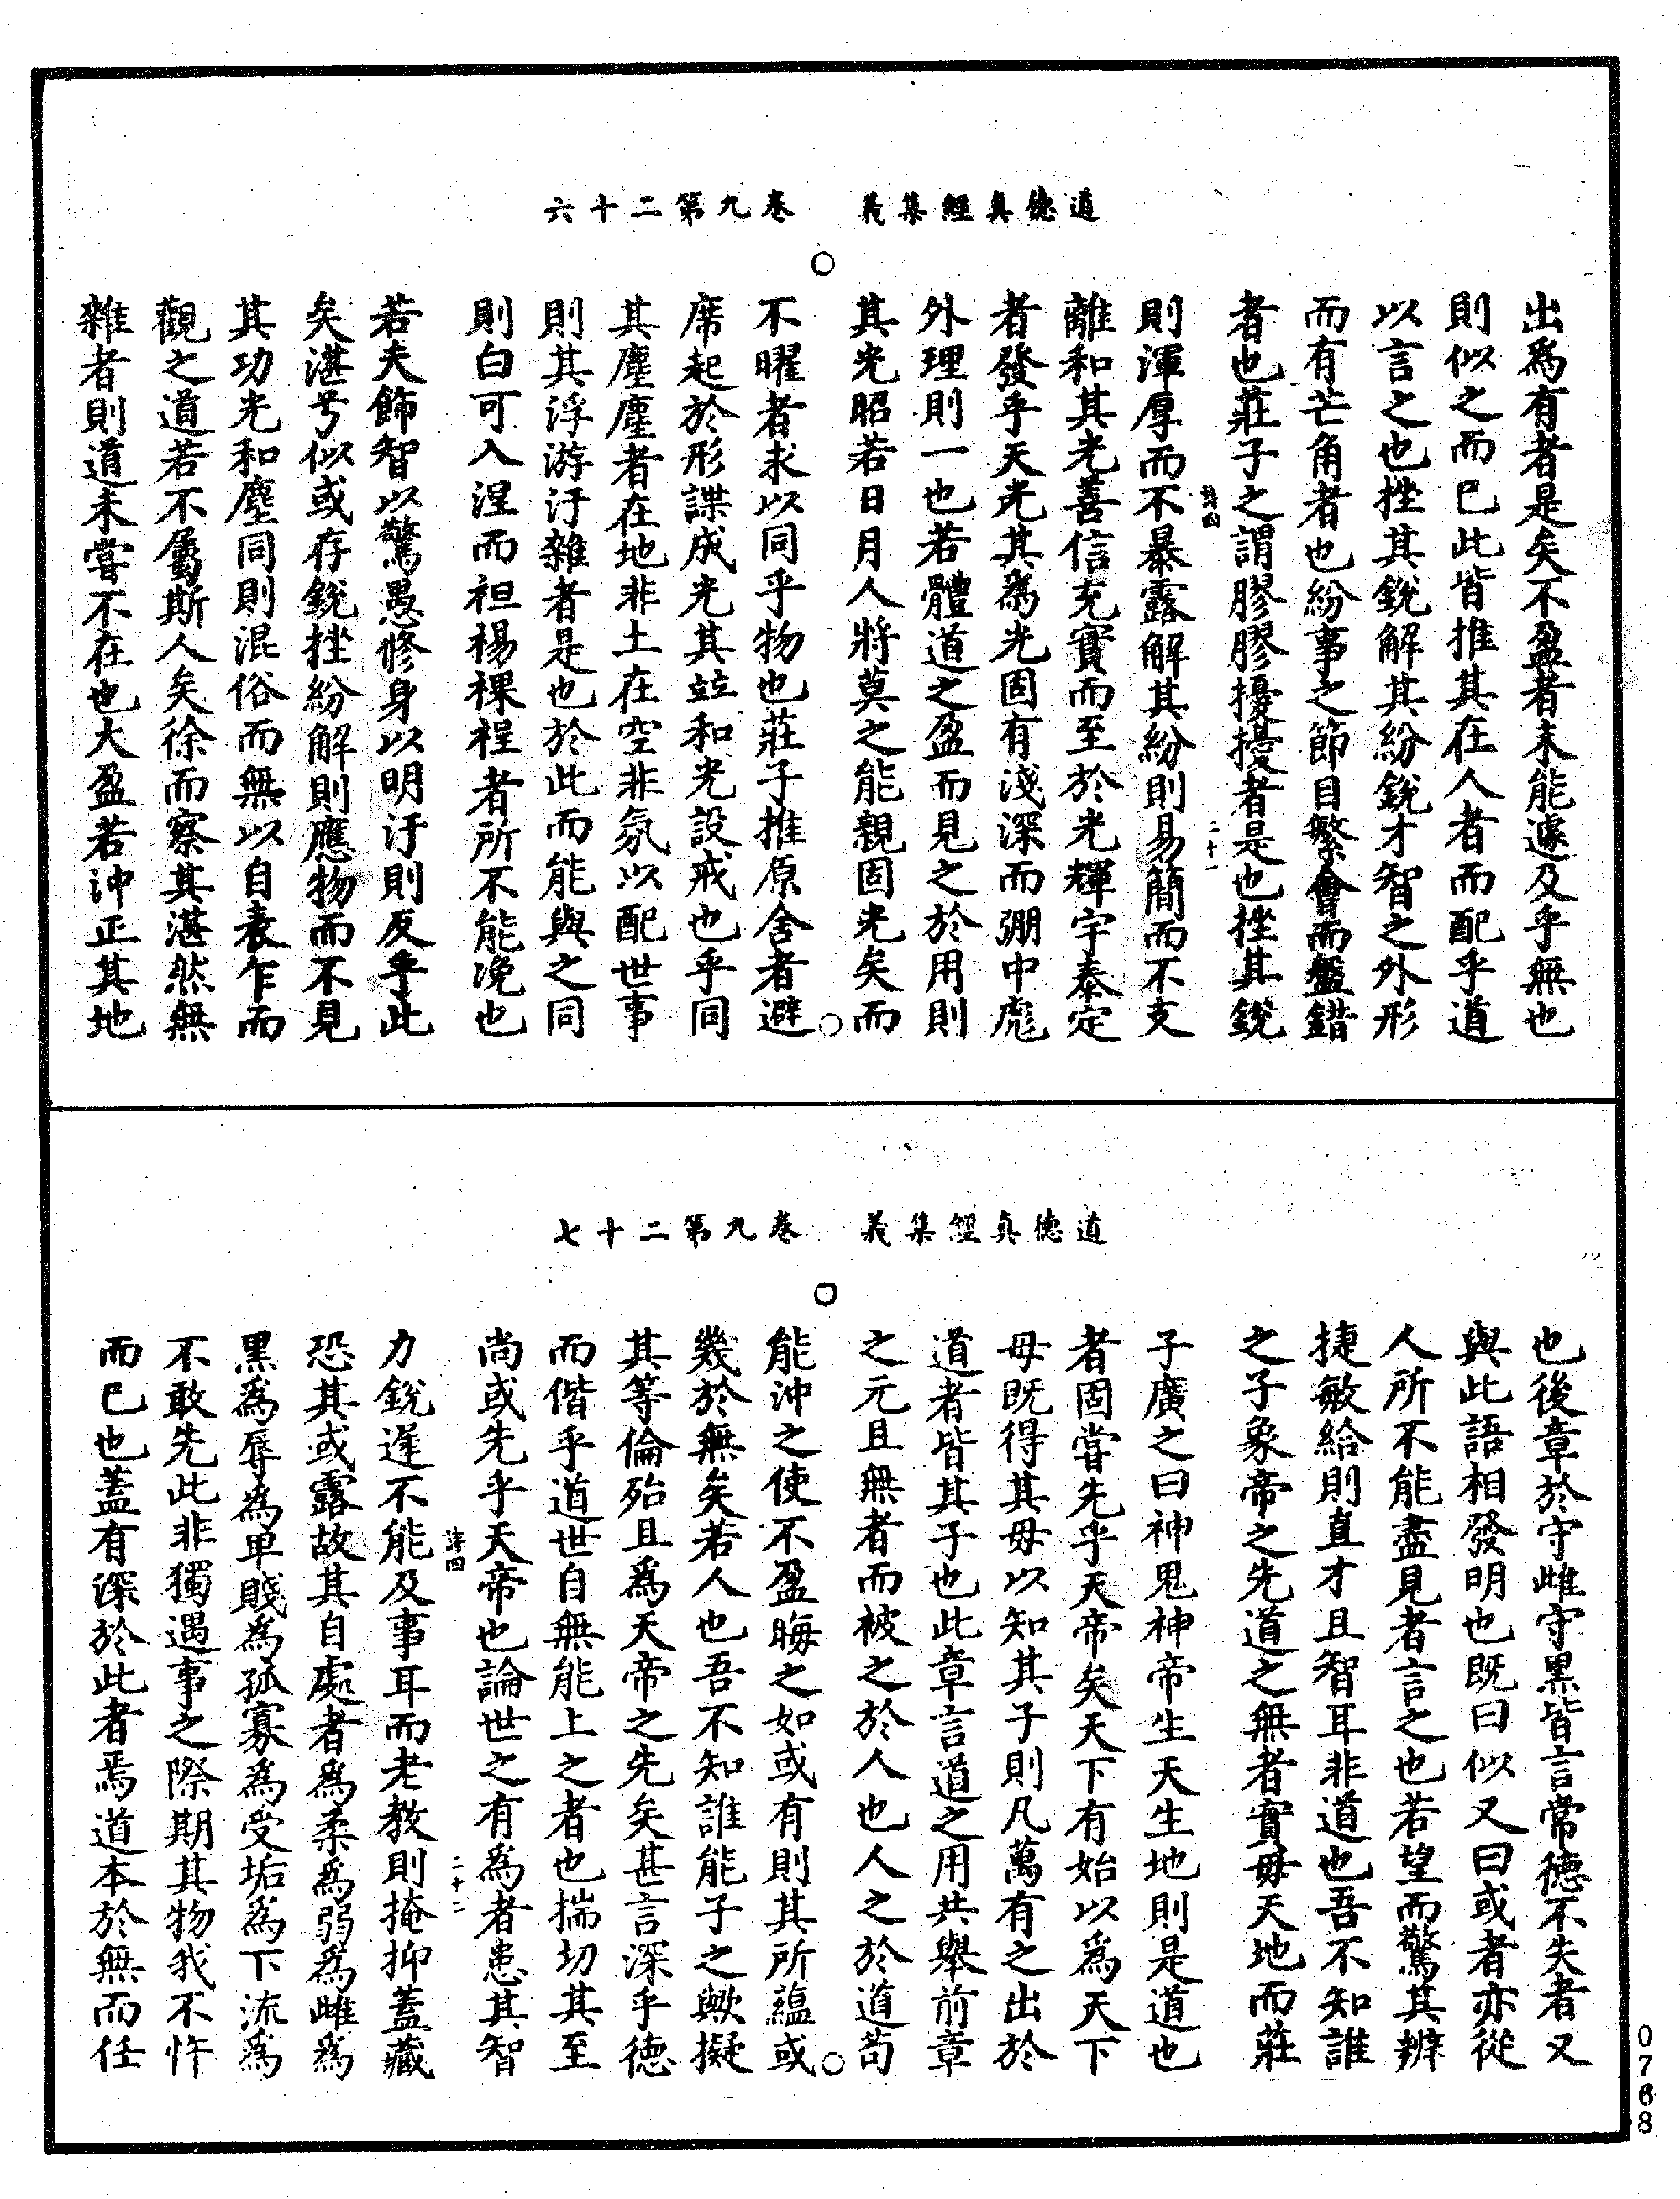 道德真經集義　卷九第二十六
出爲有者是矣不盈者未能遽及乎無也
則似之而已此皆推其在人者而配乎道
以言之也挫其銳解其紛銳才智之外形
而有芒角者也紛事之節目繁會而盤錯
者也莊子之謂膠膠擾擾者是也挫其銳
詩四　二十一
則渾厚而不暴露解其紛則易簡而不支
離和其光善信充實而至於光輝宇泰定
者發乎天光其爲光固有淺深而弸中彪
外理則一也若體道之盈而見之於用則
其光昭若日月人將莫之能親固光矣而
不曜者求以同乎物也莊子推原舍者避
席起於形諜成光其竝和光設戒也乎同
其塵塵者在地非土在空非氛以配世事
則其浮游汙雜者是也於此而能與之同
則白可入涅而袒裼裸裎者所不能浼也
若夫飾智以驚愚修身以明汙則反乎此
矣湛兮似或存銳挫紛解則應物而不見
其功光和塵同則混俗而無以自表乍而
觀之道若不屬斯人矣徐而察其湛然無
雜者則道未嘗不在也大盈若沖正其地
道德真經集義　卷九第二十七
也後章於守雌守黑皆言常德不失者又
與此語相發明也既曰似又曰或者亦從
人所不能盡見者言之也若望而驚其辨
捷敏給則直才且智耳非道也吾不知誰
之子象帝之先道之無者實毋天地而莊
子廣之曰神鬼神帝生天生地則是道也
者固嘗先乎天帝矣天下有始以爲天下
母既得其毋以知其子則凡萬有之出於
道者皆其子也此章言道之用共舉前章
之元且無者而被之於人也人之於道苟
能沖之使不盈晦之如或有則其所蘊或
幾於無矣若人也吾不知誰能子之歟擬
其等倫殆且爲天帝之先矣甚言深乎德
而偕乎道世自無能上之者也揣切其至
尚或先乎天帝也論世之有爲者患其智
詩四　二十二
力銳遅不能及事耳而老教則掩抑蓋藏
恐其或露故其自處者爲柔爲弱爲雌爲
黑爲辱為卑賤為孤寡為受垢為下流爲
不敢先此非獨遇事之際期其物我不忤
而已也蓋有深於此者焉道本於無而任
0768